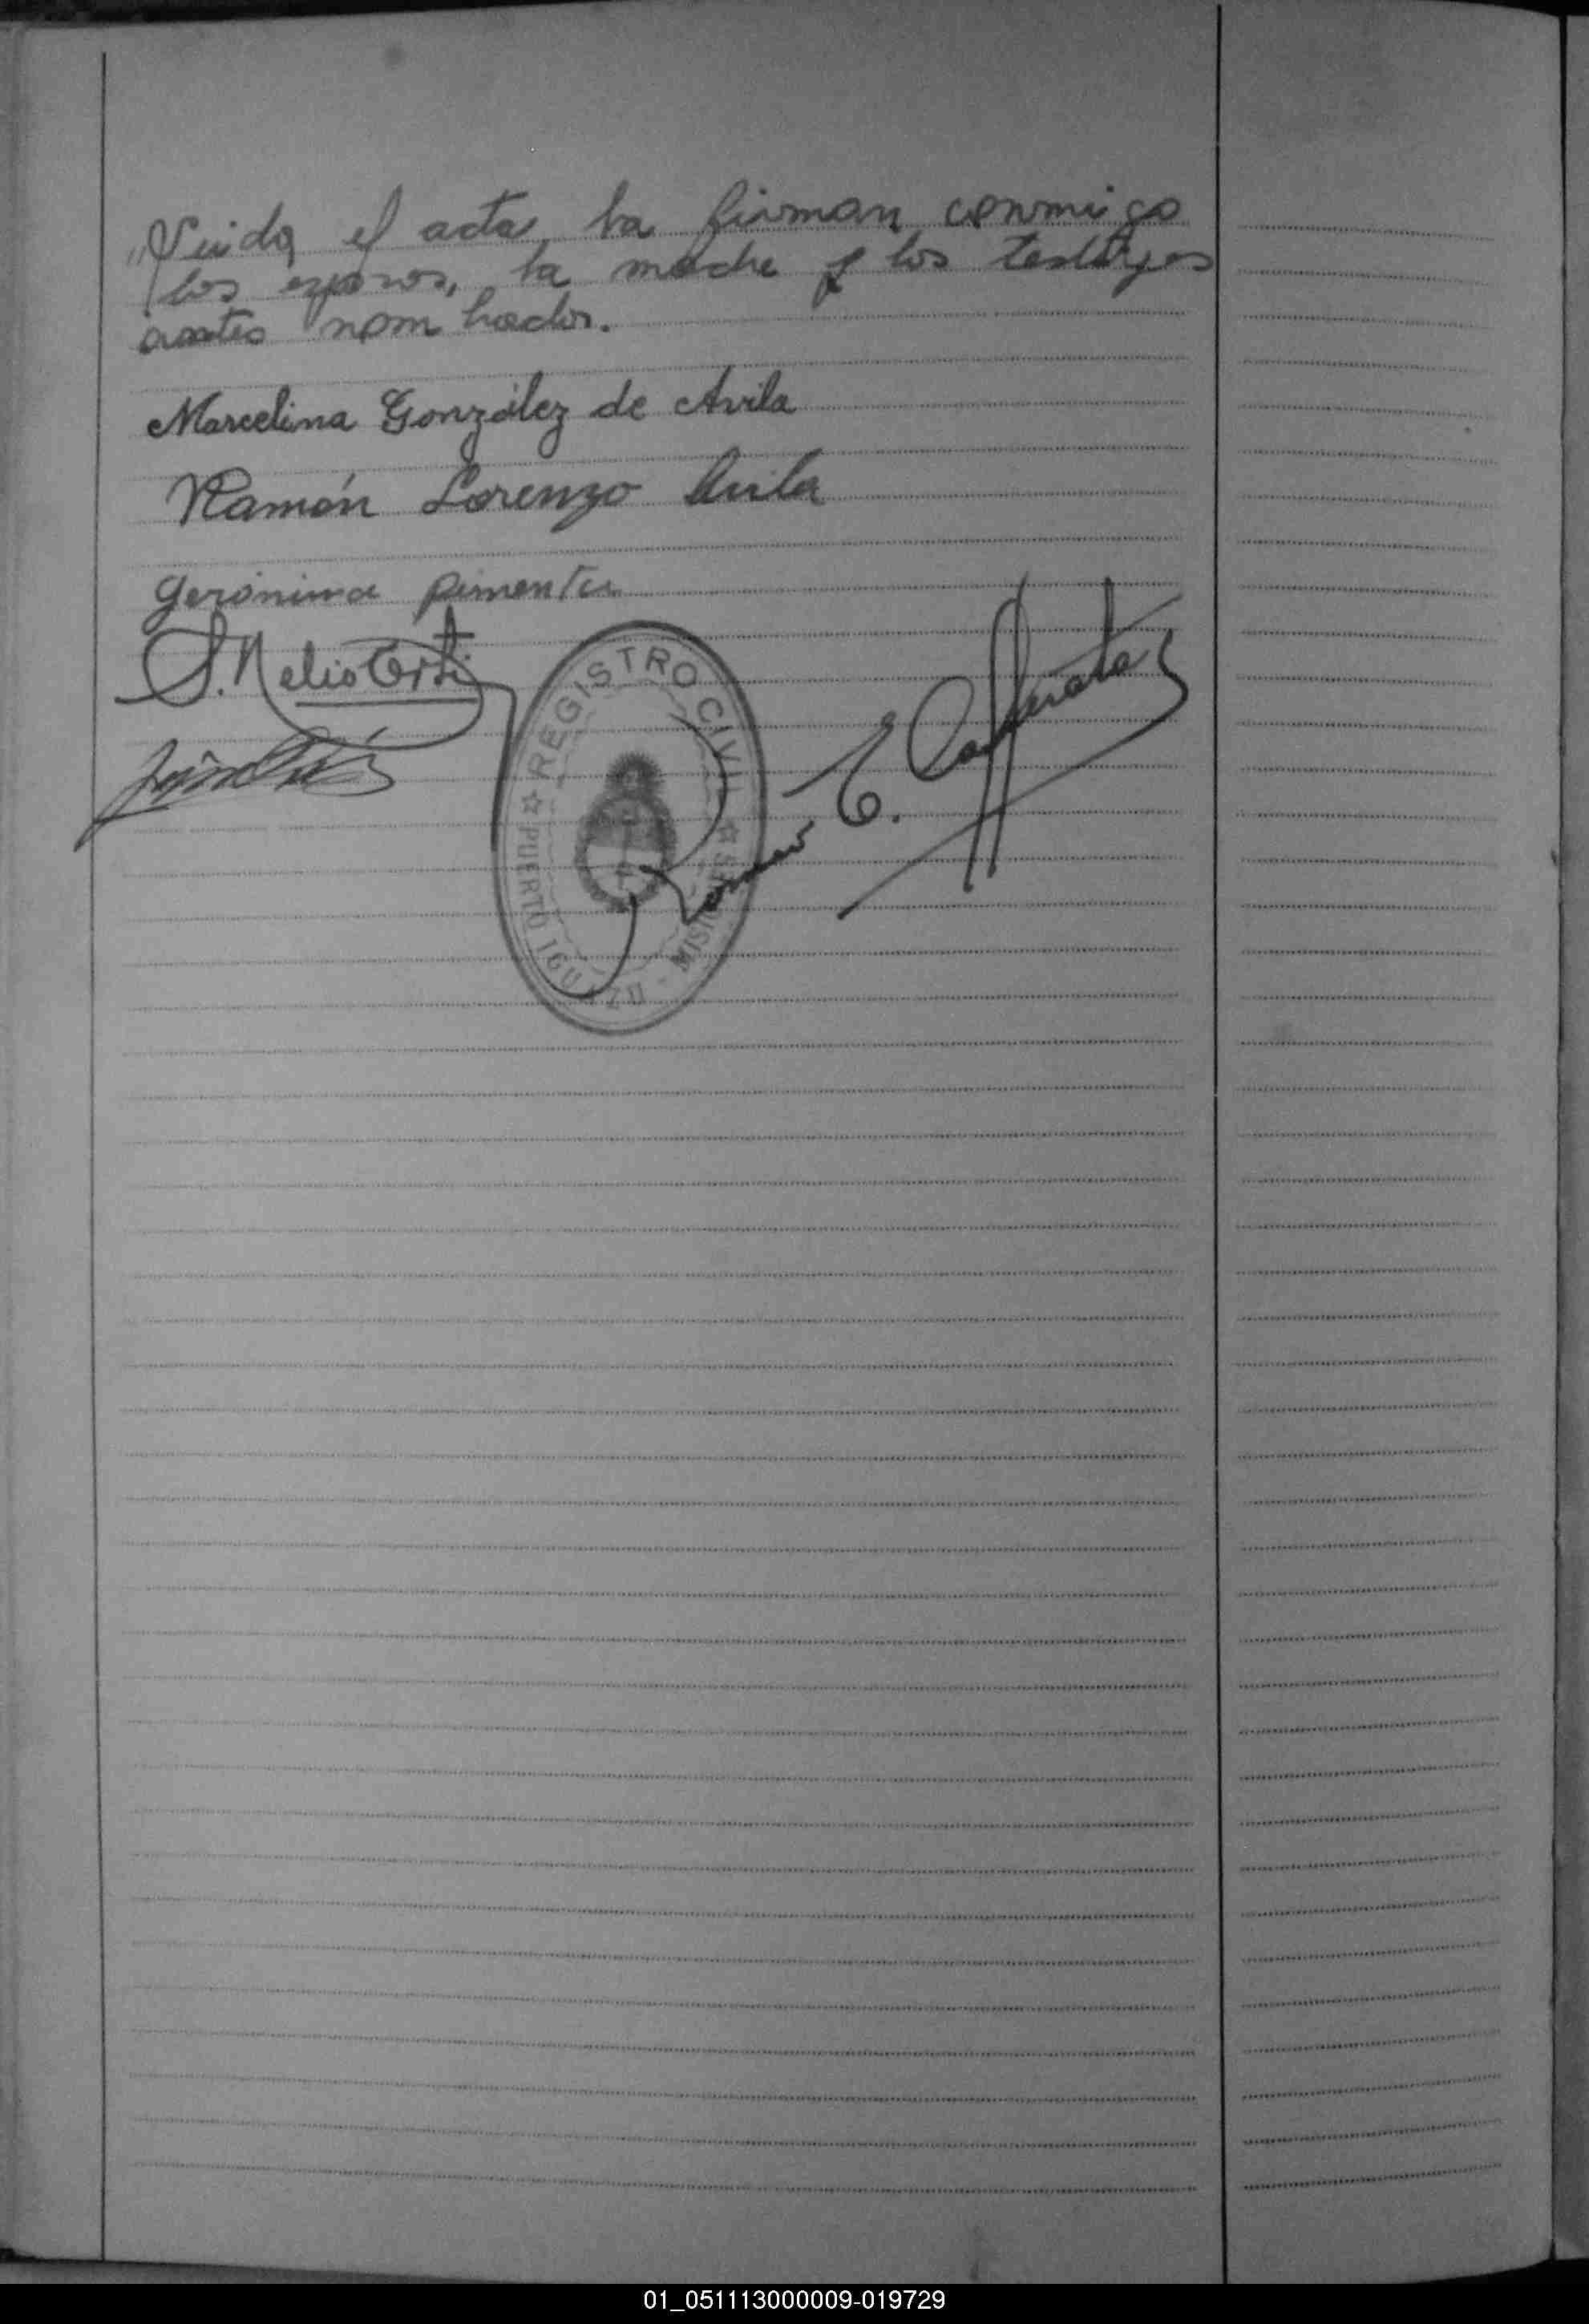 Leida el acta, la firman conmigo
los esposos, la madre y los testigos
antes nombrados.
Marcelina González de Avila
Ramón Lorenzo Avila
Gerónima pimentel
S. Nelio
REGISTRO CIVIL
PUERTO IGUAZU - MISIONES
E.
01_051113000009-019729